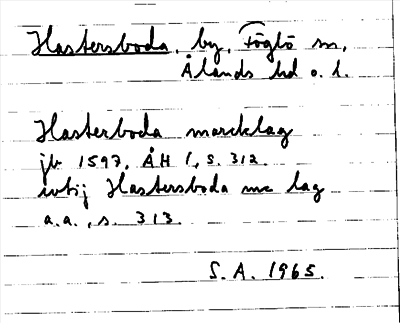 Hastersboda, by, Föglö sn,
Ålands hd o. l.
Hasterboda marcklag
jb 1597, ÅH 1, s. 312.
Hastersboda mc lag
a.a., s. 313.
S. A. 1965.